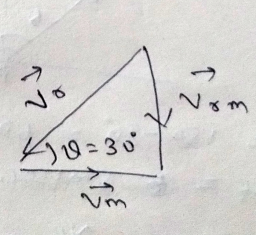 v⃗r
v⃗rm
θ = 30°
v⃗m